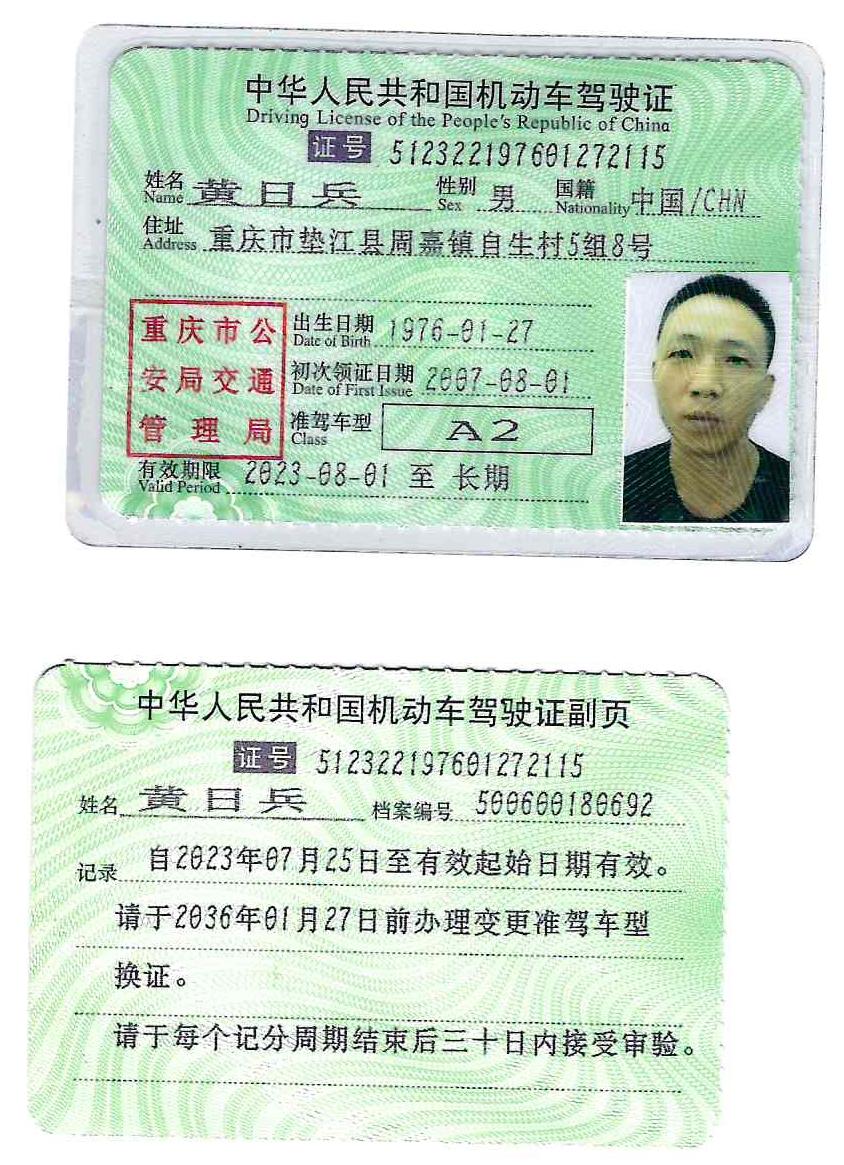 中华人民共和国机动车驾驶证
Driving License of the People's Republic of China
证号 512322197601272115
姓名 Name 黄日兵 性别 Sex 男 国籍 Nationality 中国/CHN
住址 Address 重庆市垫江县周嘉镇自生村5组8号
重庆市公
安局交通
管理局
出生日期 Date of Birth 1976-01-27
初次领证日期 Date of First Issue 2007-08-01
准驾车型 Class A2
有效期限 Valid Period 2023-08-01 至 长期
中华人民共和国机动车驾驶证副页
证号 512322197601272115
姓名 黄日兵 档案编号 500600180692
记录 自2023年07月25日至有效起始日期有效。
请于2036年01月27日前办理变更准驾车型
换证。
请于每个记分周期结束后三十日内接受审验。